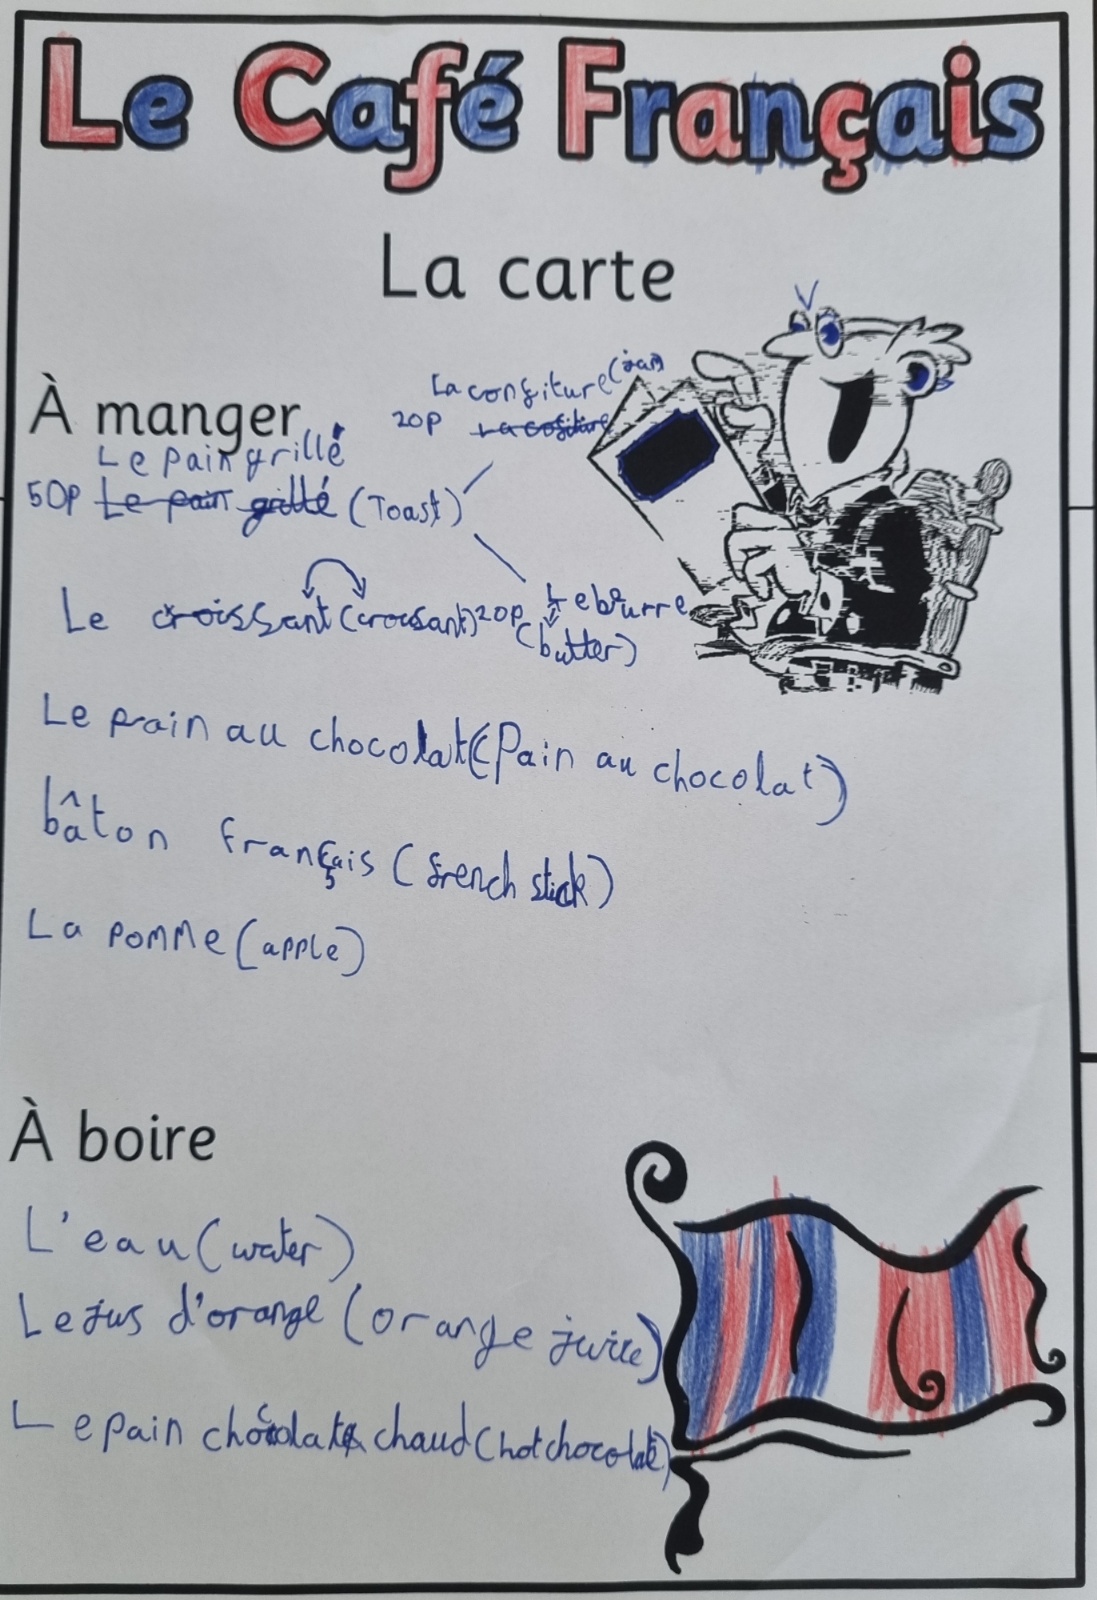 Le Café Français
La carte
À manger
La confiture (jam)
20p La cofiture
Le pain grillé
50p Le pain grillé (Toast)
Le croissant (croissant) 20p Le beurre
(butter)
Le pain au chocolat (Pain au chocolat)
bâton français (french stick)
La pomme (apple)
À boire
L'eau (water)
Le jus d'orange (orange juice)
Le pain chocolat chaud (hot chocolate)